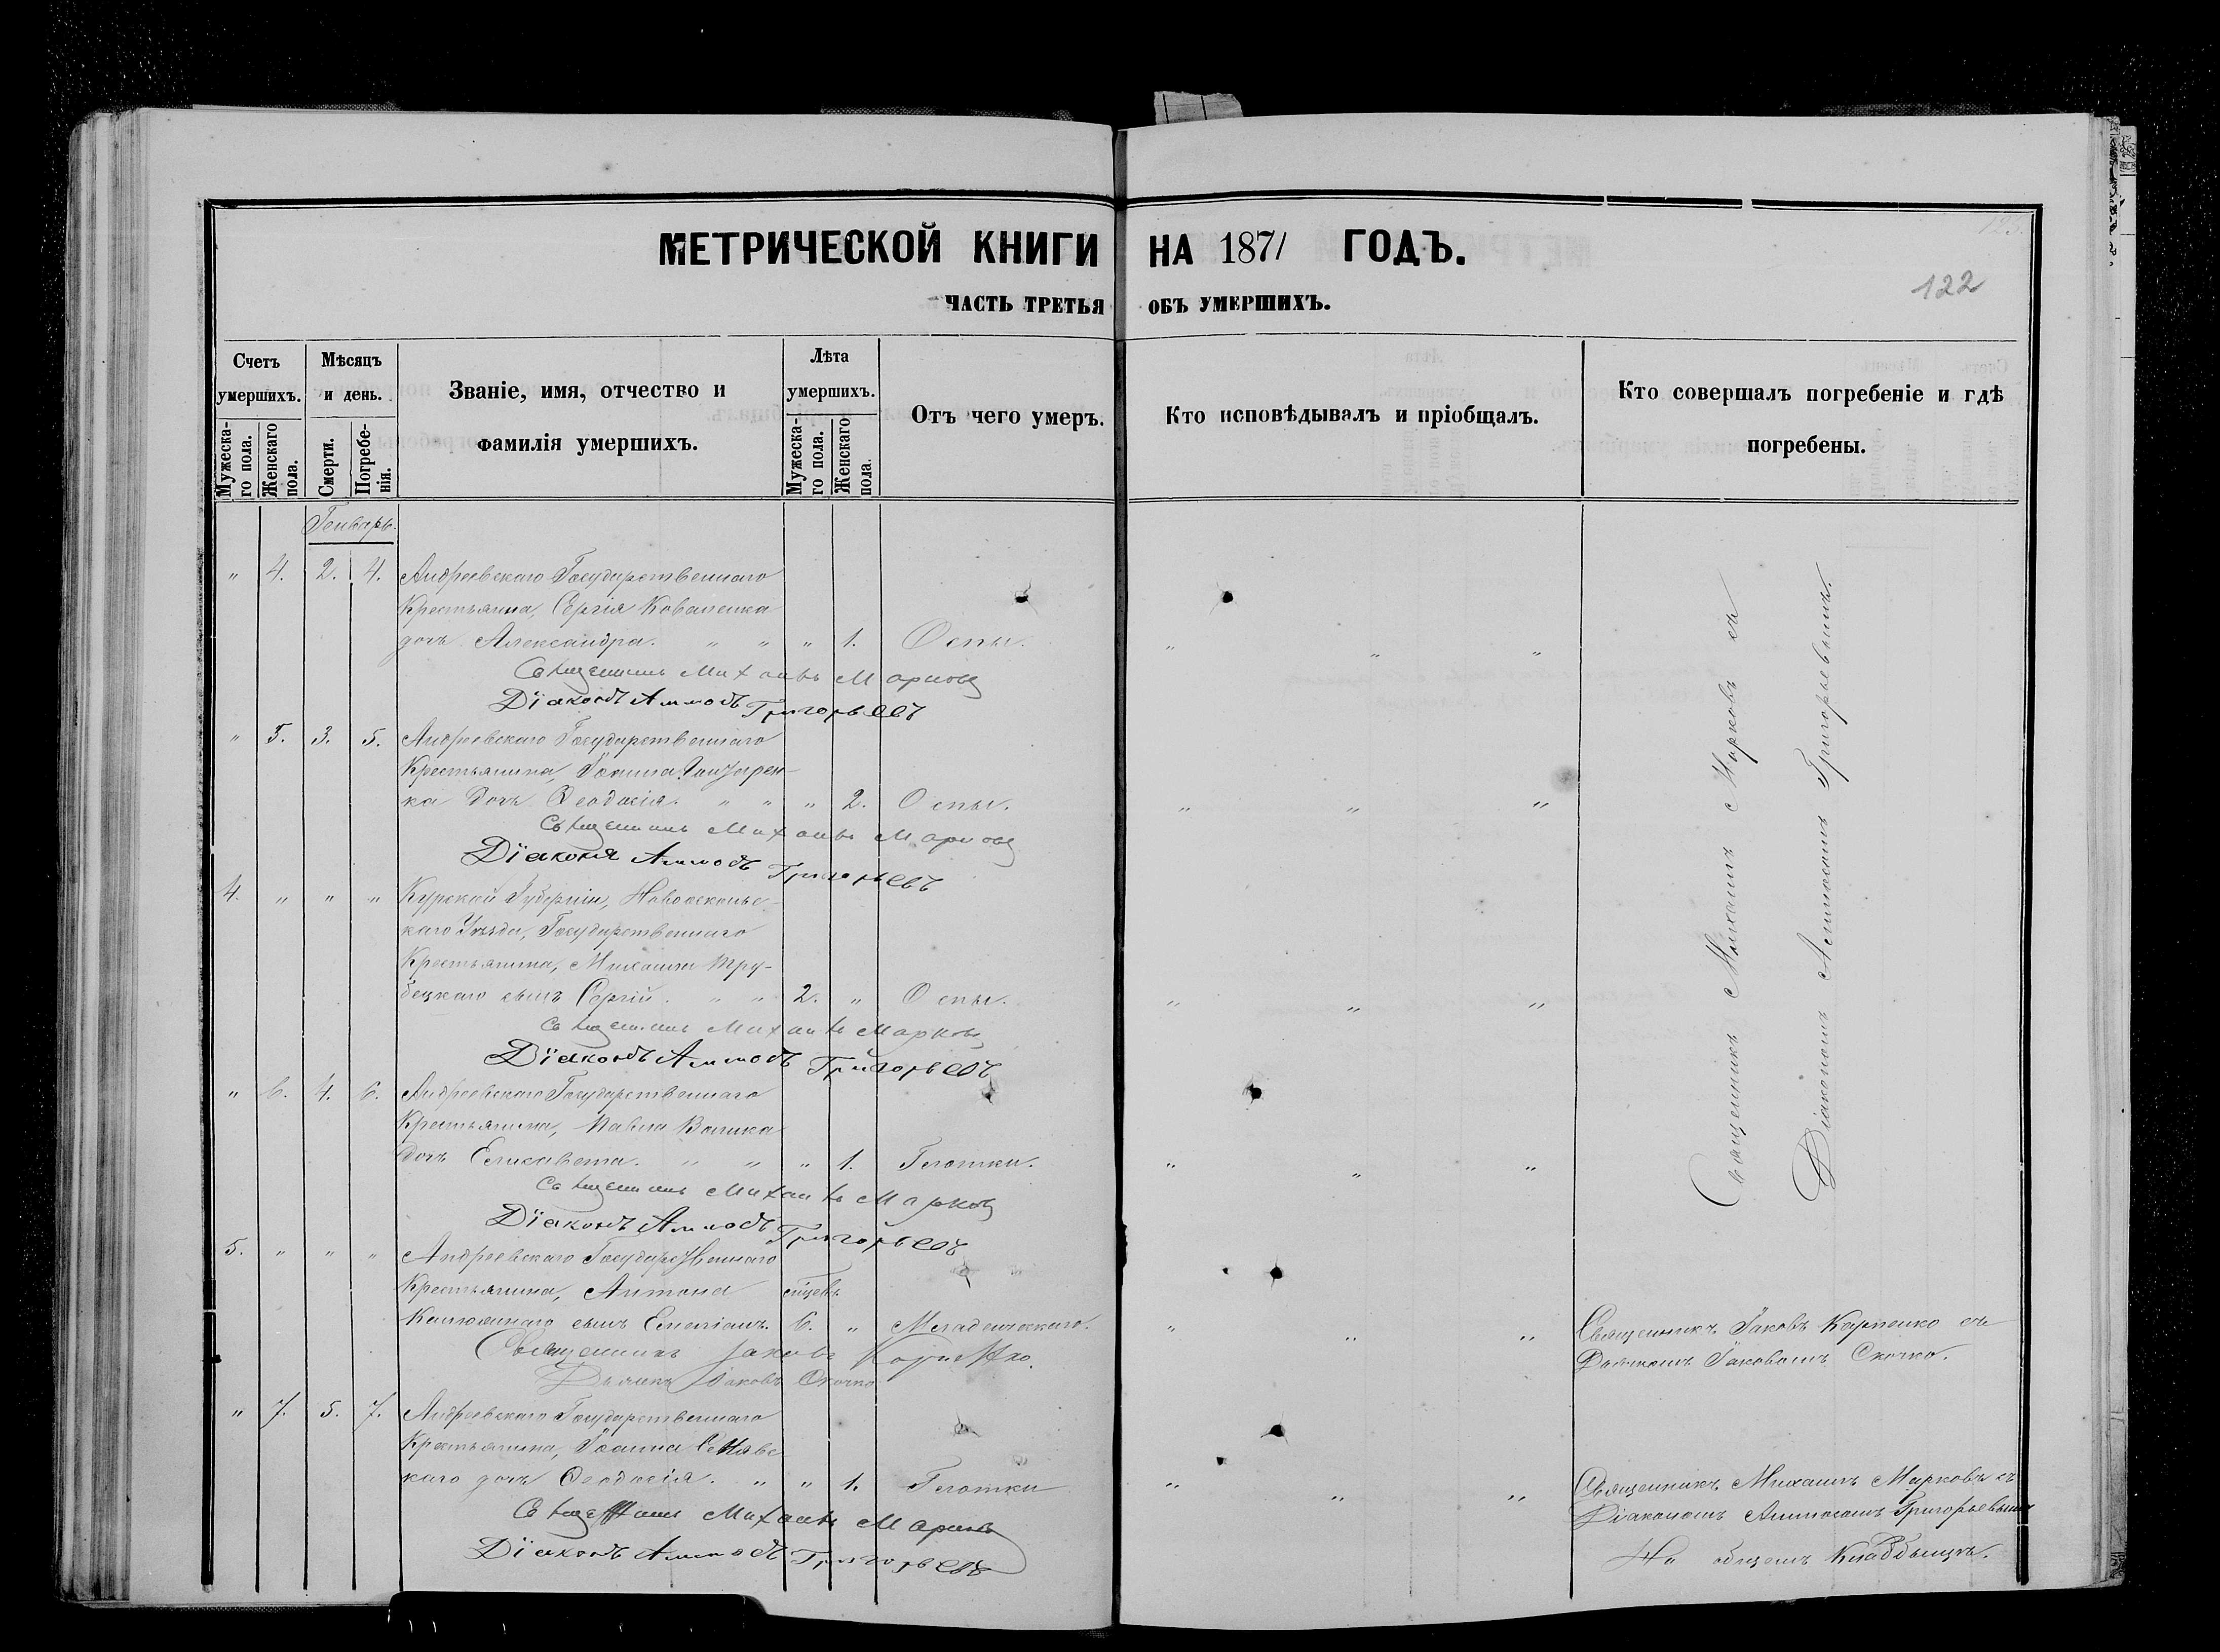 МЕТРИЧЕСКОЙ КНИГИ НА 1871 ГОДЪ.
ЧАСТЬ ТРЕТЬЯ ОБЪ УМЕРШИХЪ.
122
Счетъ умершихъ.
Мужеска-го пола.
Женскаго пола.
Мѣсяцъ и день.
Смерти.
Погребе-нія.
Званіе, имя, отчество и
фамилія умершихъ.
Лѣта умершихъ.
Мужеска-го пола.
Женскаго пола.
Отъ чего умеръ.
Кто исповѣдывалъ и пріобщалъ.
Кто совершалъ погребеніе и гдѣ
погребены.
Генварь.
" 4. 2. 4. Андреевскаго Государственнаго
Крестьянина, Сергія Коваленка
дочь Александра. " " " 1. Оспы. " " "
Священникъ Михаилъ Марковъ
Діаконъ Аммосъ Григорьевъ
" 5. 3. 5. Андреевскаго Государственнаго
Крестьянина, Іоанна
ка дочь Феодосія. " " " 2. Оспы. " " "
Священникъ Михаилъ Марковъ
Діаконъ Аммосъ Григорьевъ
4. " " " Курской Губерніи, Новооскольс-
каго Уѣзда, Государственнаго
Крестьянина, Михаила Тру-
бецкаго сынъ Сергій. " " 2. " Оспы. " " "
Священникъ Михаилъ Марковъ
Діаконъ Аммосъ Григорьевъ
" 6. 4. 6. Андреевскаго Государственнаго
Крестьянина, Павла Волика
дочь Елисавета. " " " 1. Глотки. " " "
Священникъ Михаилъ Марковъ
Діаконъ Аммосъ Григорьевъ
Священникъ Михаилъ Марковъ съ
Діакономъ Аммосомъ Григорьевымъ.
5. " " " Андреевскаго Государственнаго
Крестьянина, Антона
сынъ 6. " Младенческаго. " " "
Священникъ Іаковъ Карпенко
Дьячекъ Іаковъ Скочко
Священникъ Іаковъ Карпенко съ
Дьячкомъ Іаковомъ Скочко.
" 7. 5. 7. Андреевскаго Государственнаго
Крестьянина, Іоанна
каго дочь Феодосія. " " 1. Глотки " " "
Священникъ Михаилъ Марковъ
Діаконъ Аммосъ Григорьевъ
Священникъ Михаилъ Марковъ съ
Діакономъ Аммосомъ Григорьевымъ
На общемъ Кладбищѣ.